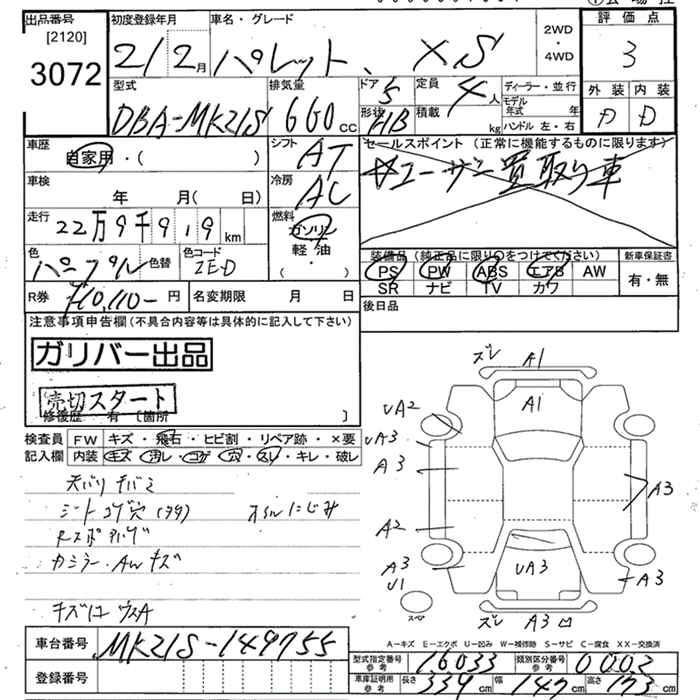 出品番号
[2120]
3072
初度登録年月
21/2月
車名・グレード
パレット、XS
2WD
・
4WD
評価点
3
外装 内装
D D
型式
DBA-MK21S
排気量
660cc
ドア
5
形状
HB
定員
4人
積載
kg
ディーラー・並行
モデル年式 年
ハンドル 左・右
車歴
自家用・( )
シフト
AT
セールスポイント (正常に機能するものに限ります)
☆ユーザー買取り車
車検
年 月( 日)
冷房
AC
走行
22万9千919km
燃料
ガソリン
軽・油
・( )
色
パープル
色替
色コード
ZE-D
装備品 (純正品に限り○をつけてください)
PS PW ABS エアB AW
SR ナビ TV カワ
新車保証書
有・無
R券
¥10,110-円
名変期限 月 日
後日品
注意事項申告欄(不具合内容等は具体的に記入して下さい)
ガリバー出品
売切スタート
修復歴 有 〔箇所 〕
検査員
記入欄
FW キズ・飛石・ヒビ割・リペア跡・×要
内装 キズ・汚レ・コゲ・穴・スレ・キレ・破レ
シートコゲ穴(タタ) オイルにじみ
AWキズ
ズレ A1
A1
UA2
UA3
A3
A3
A2
A3
U1
UA3
A3
ズレ A3
A-キズ E-エクボ U-凹み W-補修跡 S-サビ C-腐食 XX-交換済
車台番号
MK21S-149755
登録番号
型式指定番号
参考
16033
類別区分番号
参考
0002
車庫証明用
参考
長さ 339cm 幅 147cm 高さ 173cm